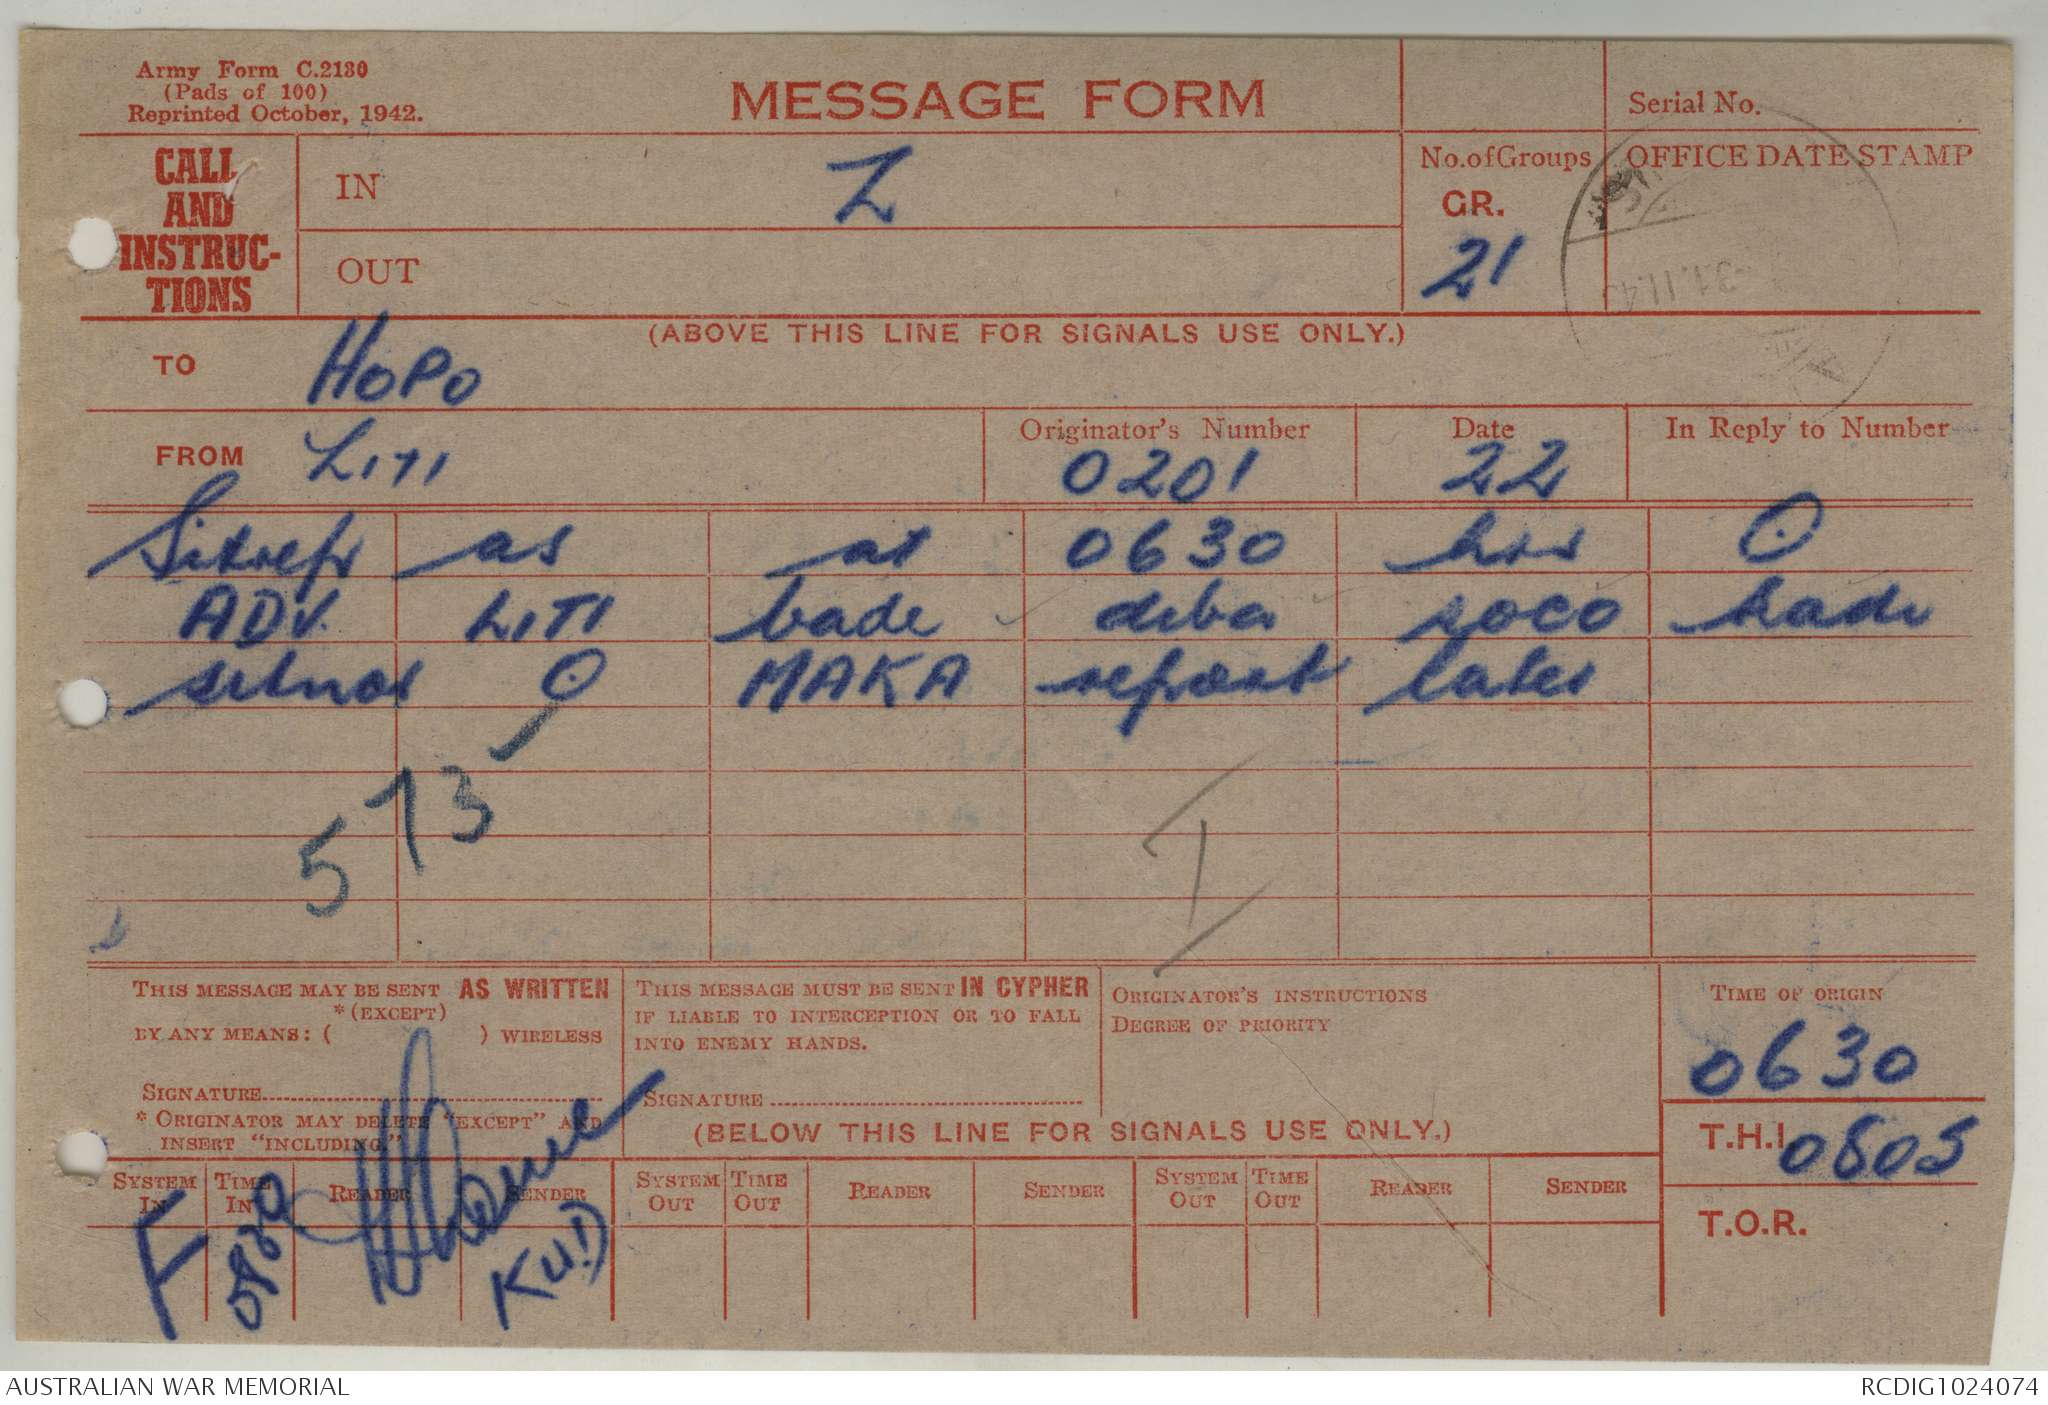 Army Form C.2130
(Pads of 100)
Reprinted October, 1942.
MESSAGE FORM
Serial No.
CALL
AND
INSTRUC-
TIONS
IN
Z
No. of Groups
GR.
21
OFFICE DATE STAMP
OUT
(ABOVE THIS LINE FOR SIGNALS USE ONLY.)
TO HOPO
FROM LITI
Originator's Number 0201
Date 22
In Reply to Number
Sitrep as at 0630 hrs O
ADV. LITI bade diba soco
O MAKA report later
573
THIS MESSAGE MAY BE SENT AS WRITTEN
*(EXCEPT)
BY ANY MEANS: ( ) WIRELESS
SIGNATURE
* ORIGINATOR MAY DELETE "EXCEPT" AND
INSERT "INCLUDING."
THIS MESSAGE MUST BE SENT IN CYPHER
IF LIABLE TO INTERCEPTION OR TO FALL
INTO ENEMY HANDS.
SIGNATURE
ORIGINATOR'S INSTRUCTIONS
DEGREE OF PRIORITY
TIME OF ORIGIN
0630
(BELOW THIS LINE FOR SIGNALS USE ONLY.)
T.H.I. 0805
SYSTEM IN TIME IN READER SENDER SYSTEM OUT TIME OUT READER SENDER SYSTEM OUT TIME OUT READER SENDER
T.O.R.
F
AUSTRALIAN WAR MEMORIAL
RCDIG1024074